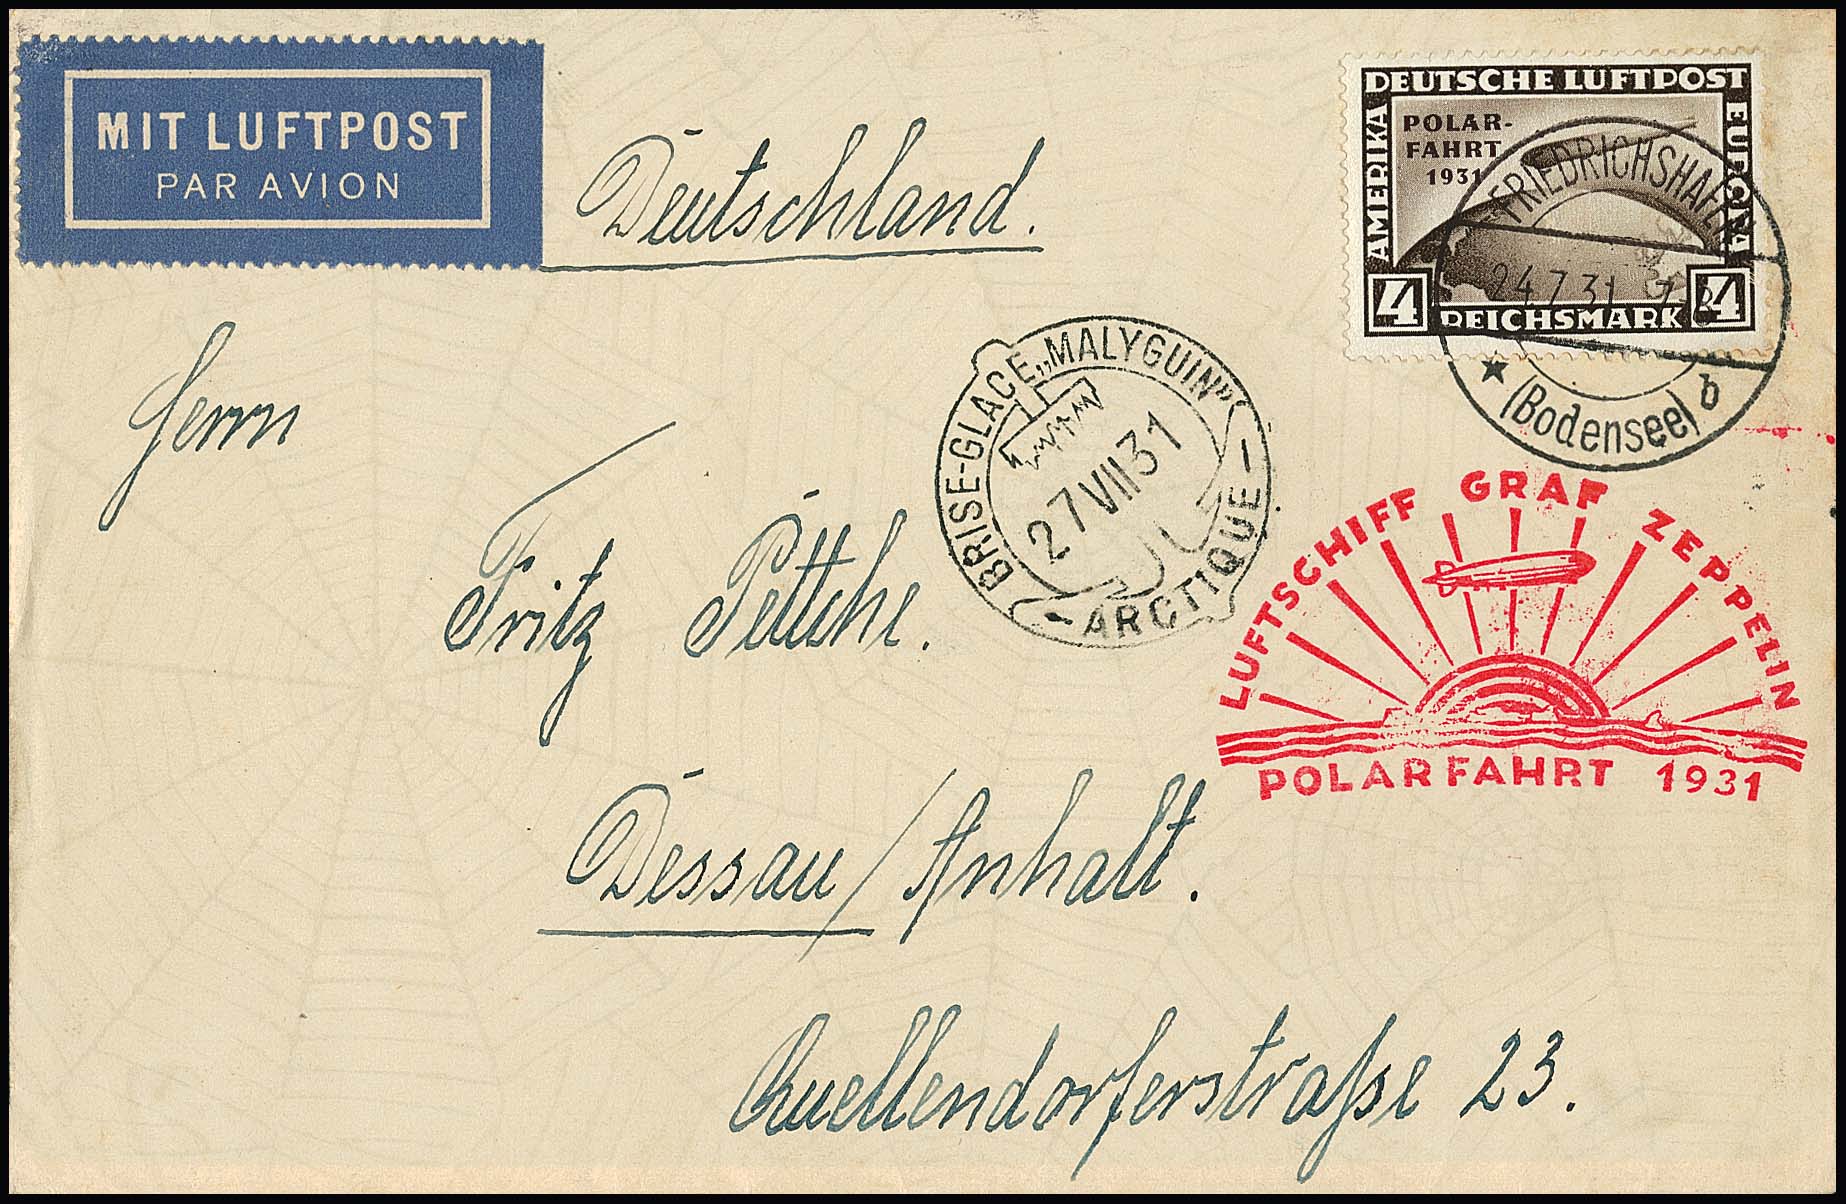 MIT LUFTPOST
PAR AVION
Deutschland.
DEUTSCHE LUFTPOST
AMERIKA
EUROPA
POLAR-
FAHRT
1931
4 REICHSMARK 4
FRIEDRICHSHAFEN
24.7.31. 7-8
★ (Bodensee) b
BRISE-GLACE „MALYGUIN"
27 VII 31
- ARCTIQUE -
Herrn
Fritz
LUFTSCHIFF GRAF ZEPPELIN
POLARFAHRT 1931
Dessau / Anhalt.
Quellendorferstraße 23.